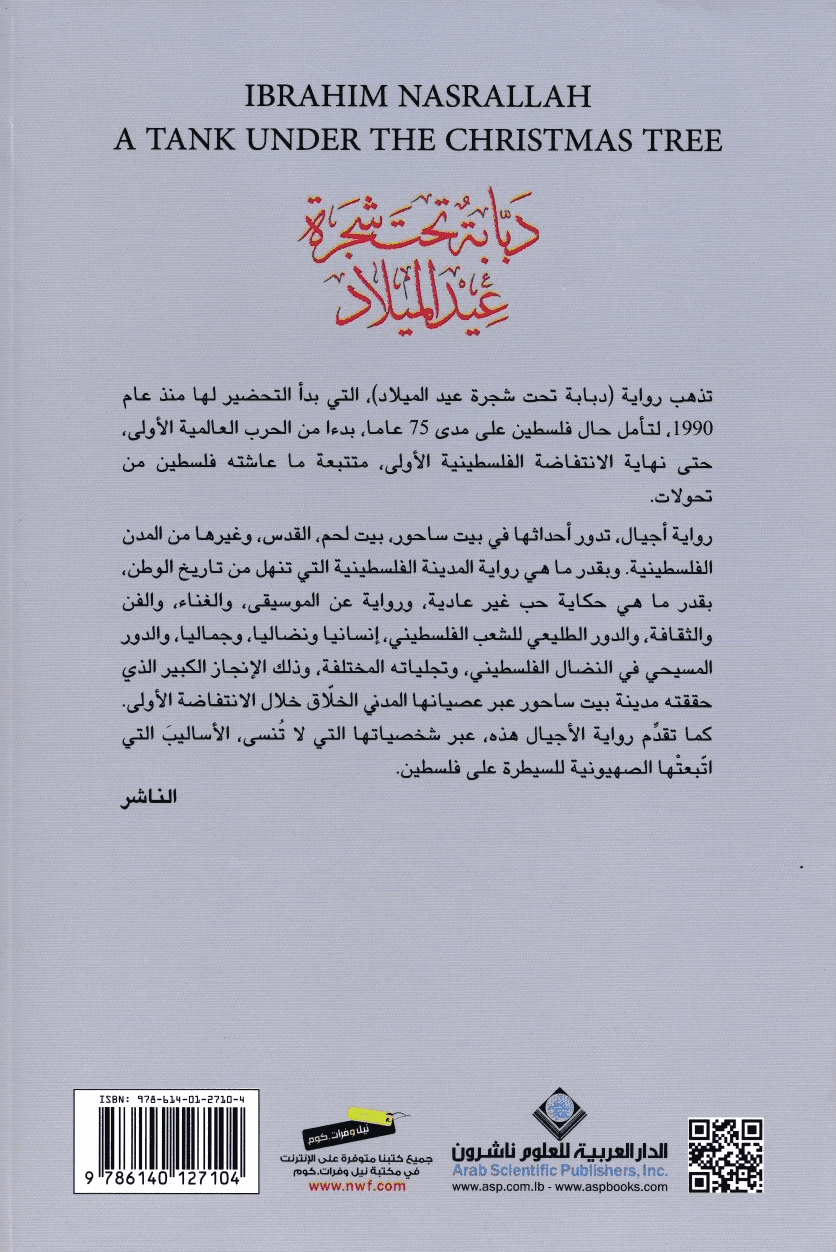 IBRAHIM NASRALLAH
A TANK UNDER THE CHRISTMAS TREE
دبّابةٌ تحتَ شجرة
عيد الميلاد
تذهب رواية (دبابة تحت شجرة عيد الميلاد)، التي بدأ التحضير لها منذ عام
1990، لتأمل حال فلسطين على مدى 75 عاما، بدءا من الحرب العالمية الأولى،
حتى نهاية الانتفاضة الفلسطينية الأولى، متتبعة ما عاشته فلسطين من
تحولات.
رواية أجيال، تدور أحداثها في بيت ساحور، بيت لحم، القدس، وغيرها من المدن
الفلسطينية. وبقدر ما هي رواية المدينة الفلسطينية التي تنهل من تاريخ الوطن،
بقدر ما هي حكاية حب غير عادية، ورواية عن الموسيقى، والغناء، والفن
والثقافة، والدور الطليعي للشعب الفلسطيني، إنسانيا ونضاليا، وجماليا، والدور
المسيحي في النضال الفلسطيني، وتجلياته المختلفة، وذلك الإنجاز الكبير الذي
حققته مدينة بيت ساحور عبر عصيانها المدني الخلّاق خلال الانتفاضة الأولى.
كما تقدِّم رواية الأجيال هذه، عبر شخصياتها التي لا تُنسى، الأساليبَ التي
اتّبعتْها الصهيونية للسيطرة على فلسطين.
الناشر
ISBN: 978-614-01-2710-4
9 786140 127104
نيل وفرات.كوم
جميع كتبنا متوفرة على الإنترنت
في مكتبة نيل وفرات.كوم
www.nwf.com
الدار العربية للعلوم ناشرون
Arab Scientific Publishers, Inc.
www.asp.com.lb - www.aspbooks.com